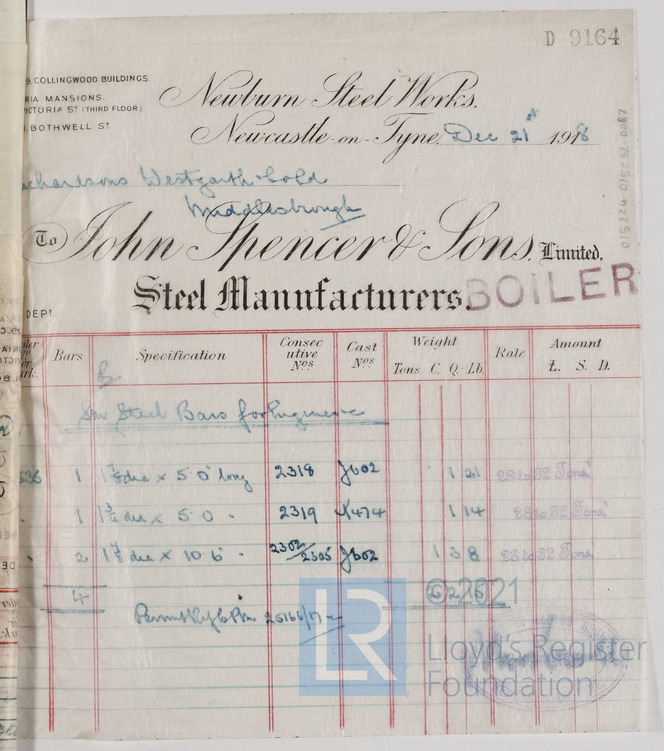 D 9164
9, COLLINGWOOD BUILDINGS.
RIA MANSIONS.
ICTORIA ST (THIRD FLOOR)
BOTHWELL ST
Newburn Steel Works.
Newcastle-on-Tyne, Dec 21st 1918
chardsons Westgarth & Co Ld
Middlesbrough
015224 0152 32-0087
To John Spencer & Sons, Limited,
Steel Manufacturers.
BOILER
DEPT
Bars Specification Consecutive Nos Cast Nos Weight Rate Amount
Tons. C. Q. Lb. £. S. D.
Steel Bars for Engine
1 1 7/8 dia x 5.0 long 2318 1 21 28 to 32 Tons
1 5.0 2319 1 14 28 to 32 Tons
2 1 7/8 dia x 10.6 2302/2305 1 3 8 28 to 32 Tons
4
25166/17
LR
© 2021
Lloyd's Register
Foundation